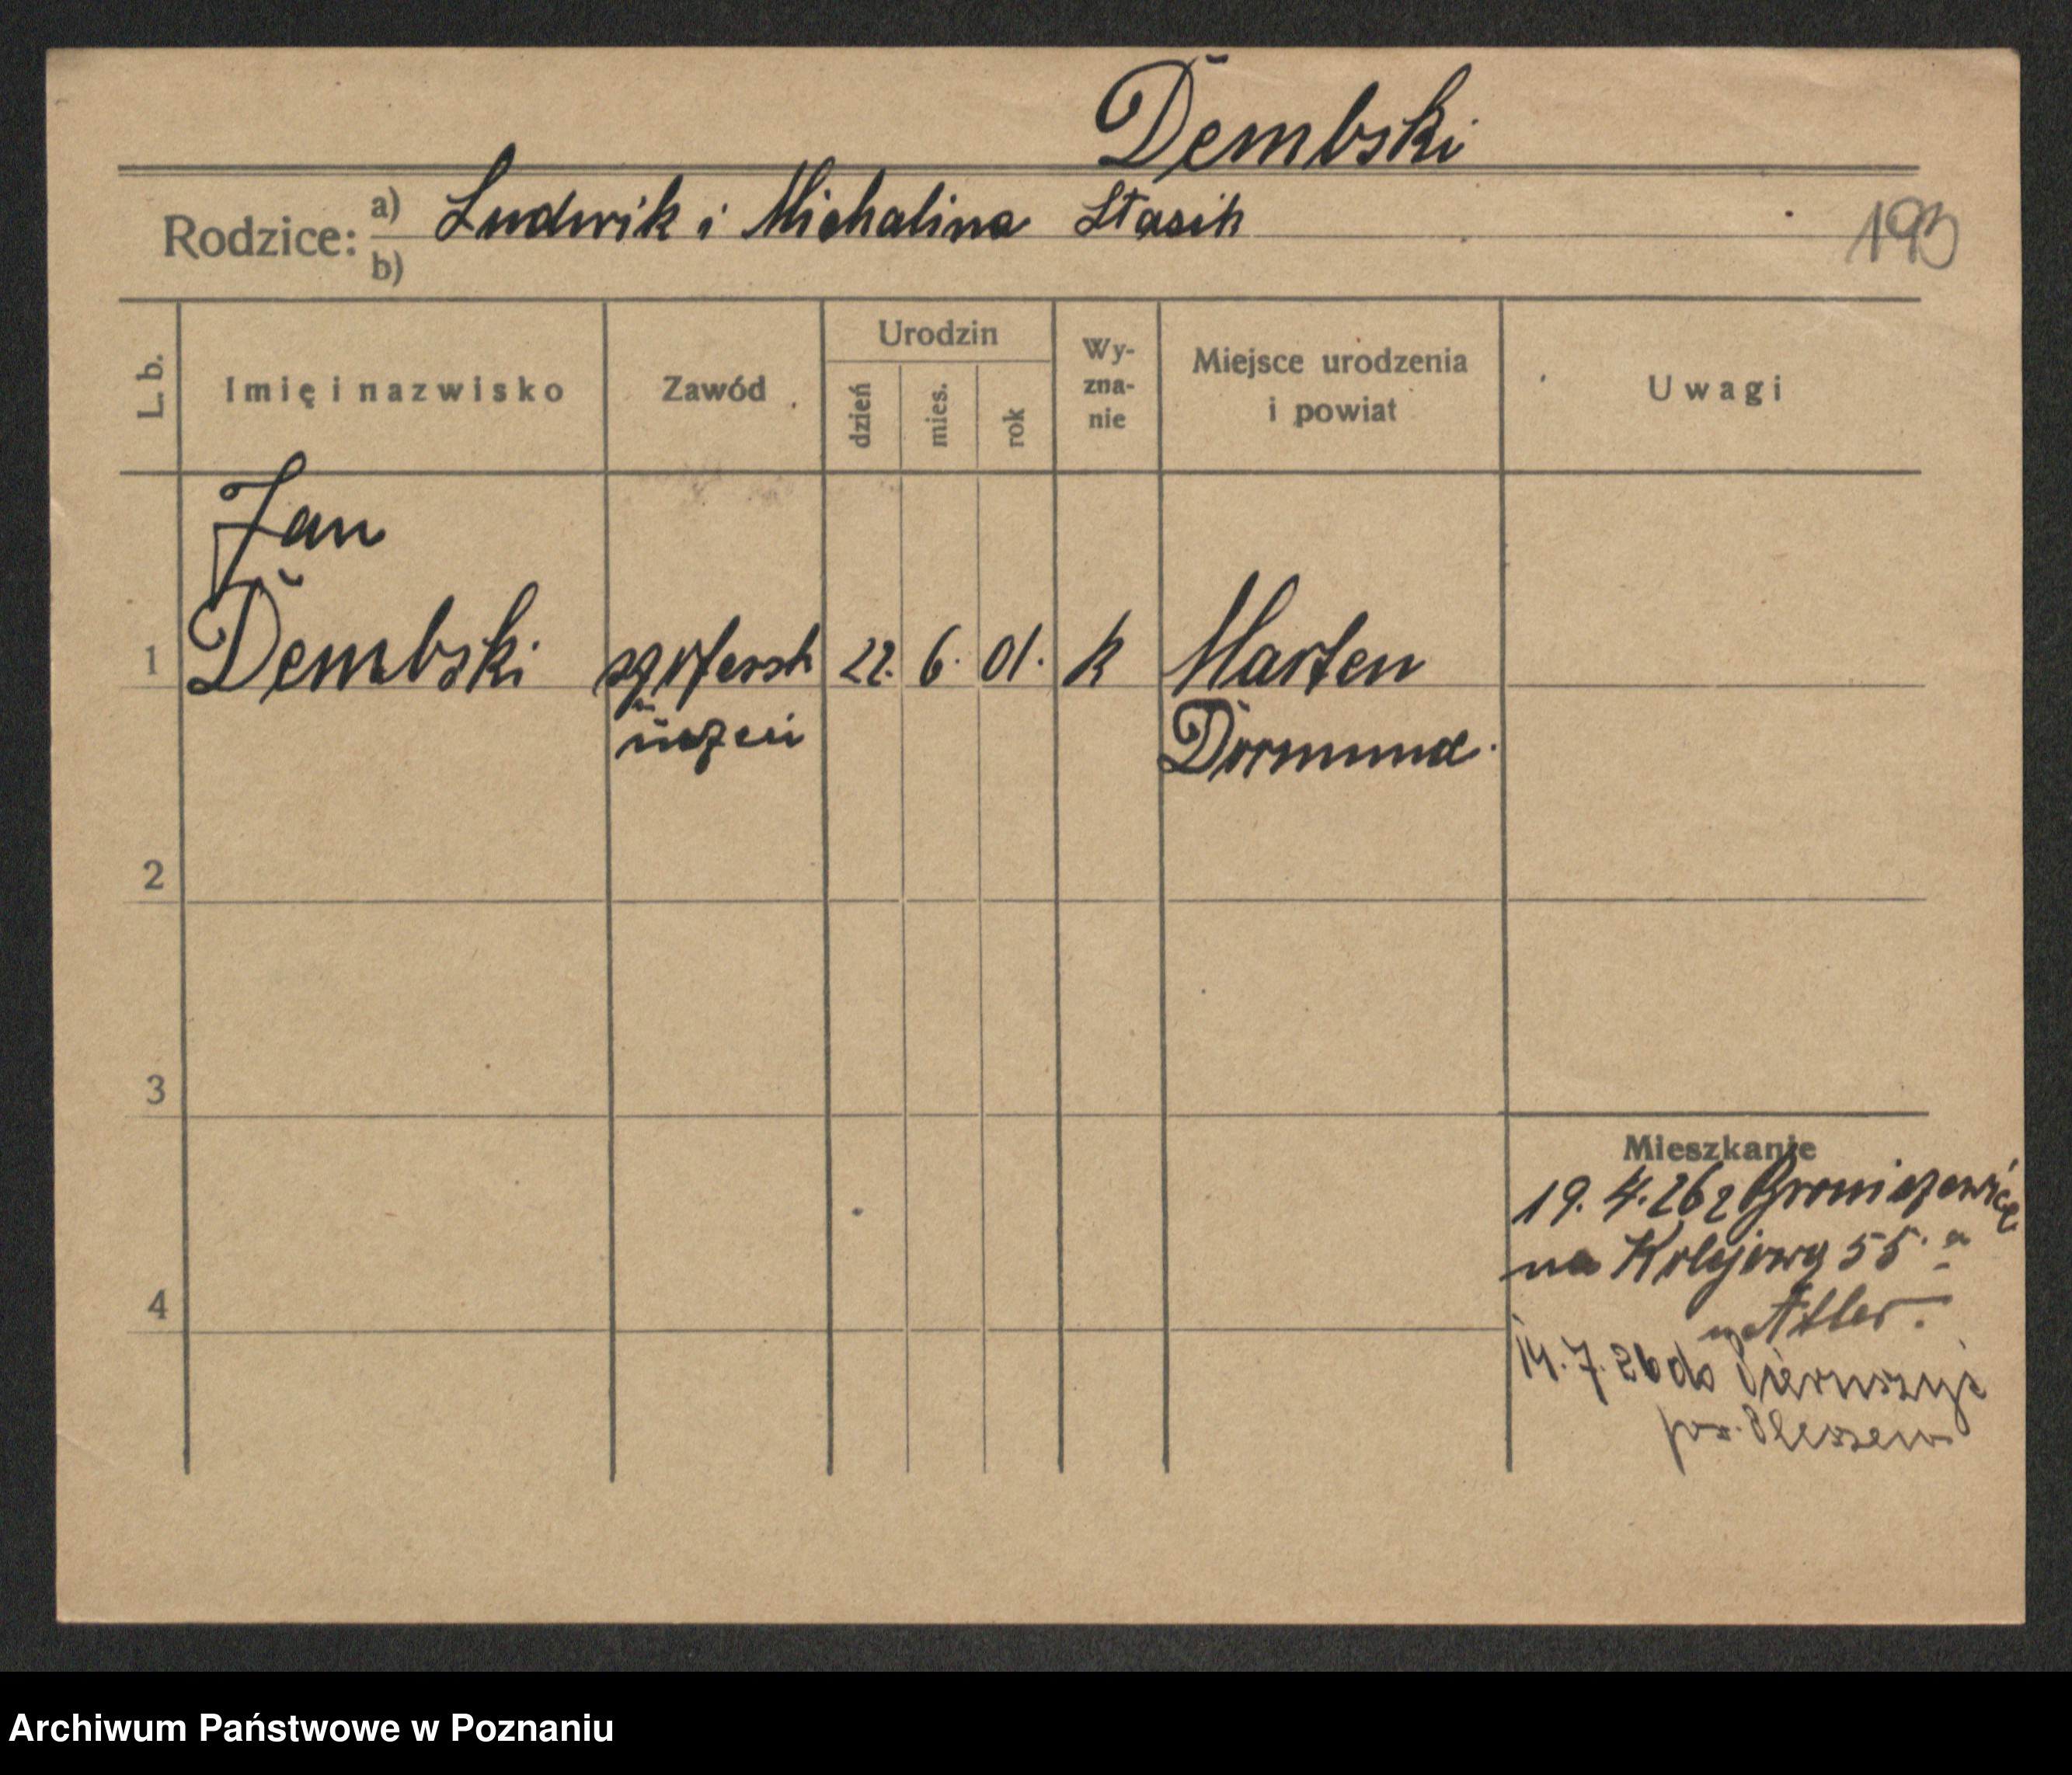 Dembski
Rodzice: a) Ludwik i Michalina Stasik
b)
193
L. b.
Imię i nazwisko
Zawód
Urodzin
dzień
mies.
rok
Wy-
zna-
nie
Miejsce urodzenia
i powiat
Uwagi
Jan
1 Dembski 22. 6. 01. k Marten
Dormund.
2
3
Mieszkanie
19. 4. 26 z
na Kolejową 55.
4
14. 7. 26 do Pieruszyc
pow. Pleszew
Archiwum Państwowe w Poznaniu